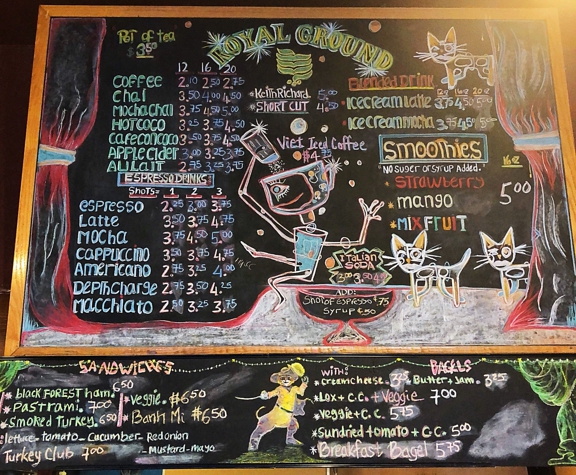 Pot of tea
$3.50
ROYAL GROUND
12 16 20
Coffee 2.10 2.50 2.75
Chai 3.50 4.00 4.50
Mochachai 3.75
Hot coco 3.25 3.75 4.50
Apple cider 3.00 3.25 3.75
Au lait 2.75 3.25 3.75
Keith Richard
SHORT CUT 4.50
Viet Iced Coffee
ESPRESSO DRINKS:
SHOTS= 1 2 3
espresso 2.25 3.00 3.75
Latte 3.50 3.75 4.75
Mocha 3.75 4.50 5.00
Cappuccino 3.50 3.75 4.75
Americano 2.75 3.25 4.00
Depthcharge 2.75 3.50 4.25
Macchiato 2.50 3.25 3.75
Italian
SODA
ADD:
Shot of espresso $.75
Syrup $.50
Blended Drink
Ice cream latte 3.75 4.50 5.00
Ice cream mocha 3.75 4.50
Smoothies
No sugar or syrup added.
Strawberry
mango 5.00
MIX FRUIT
SANDWICHES
black FOREST ham. 6.50
Pastrami. 7.00
Smoked Turkey. 6.50
Veggie. $6.50
Banh Mi $6.50
lettuce - tomato - Cucumber - Red onion
- Mustard-mayo
Turkey Club 7.00
BAGELS
with:
creamcheese. Butter + Jam. 3.25
Lox + C.C. + Veggie 7.00
veggie + C.C. 5.75
Sundried tomato + C.C. 5.00
Breakfast Bagel 5.75